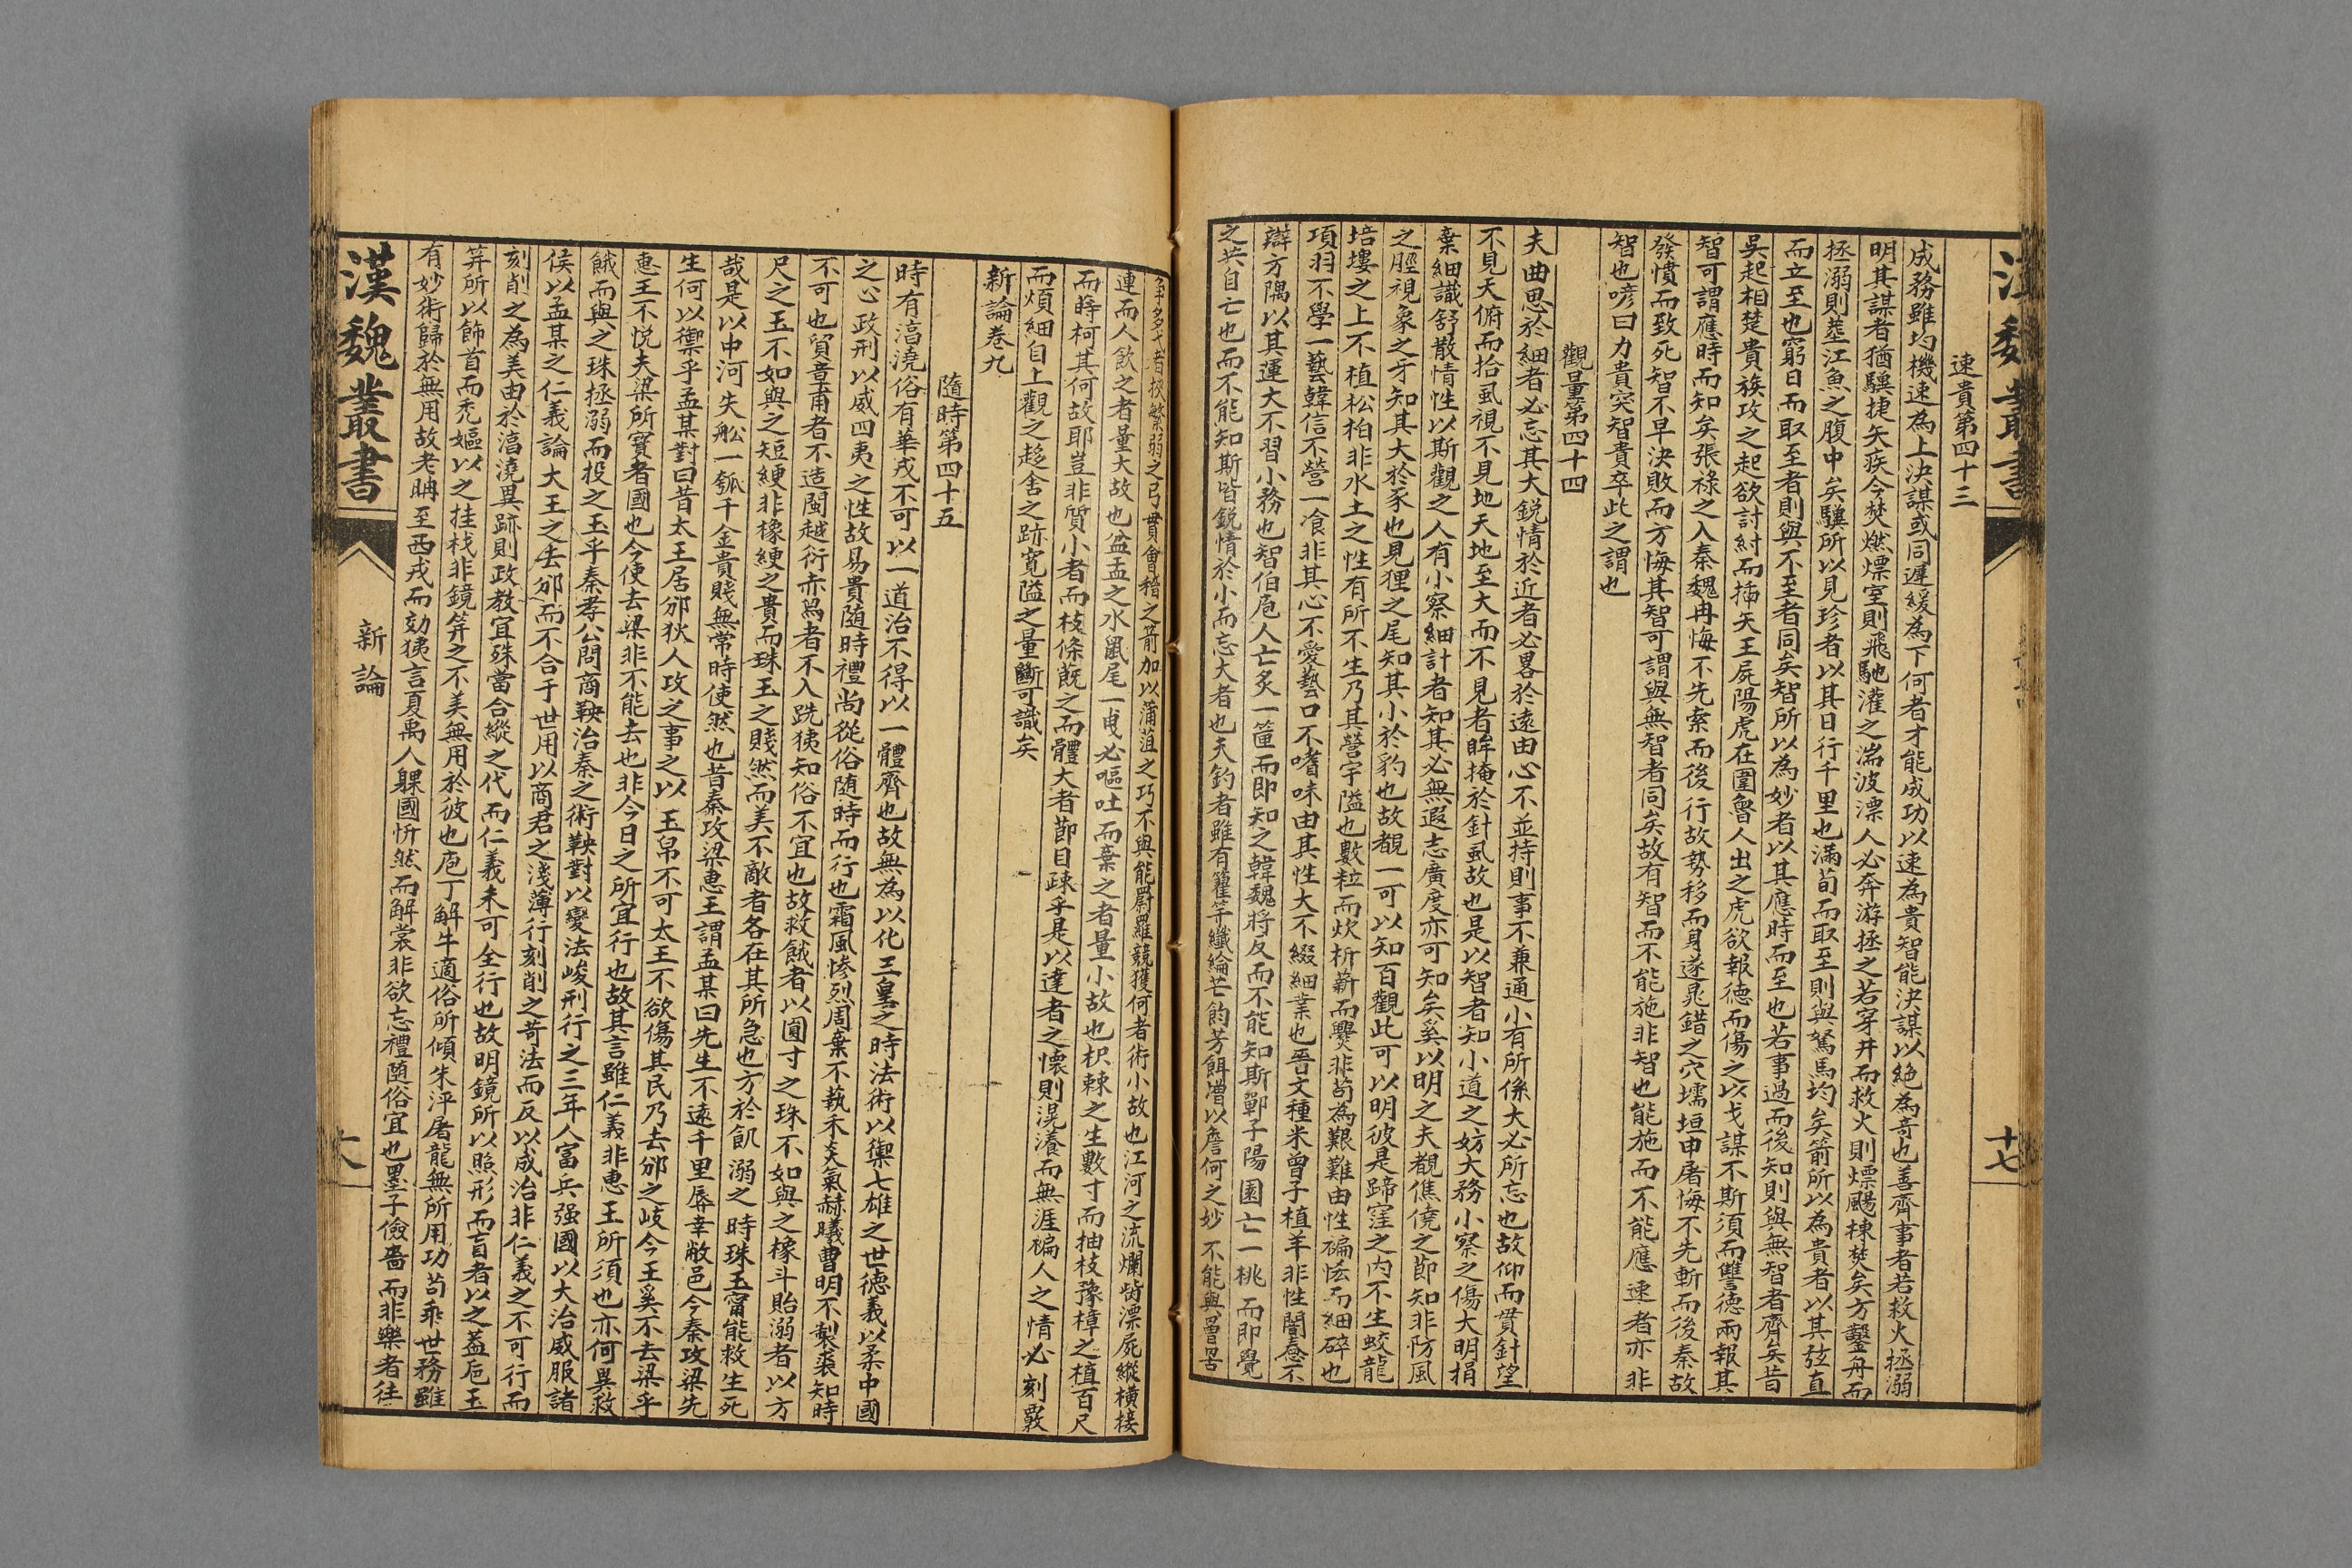 速貴第四十三
成務雖均機速為上決謀或同遲緩為下何者才能成功以速為貴智能決謀以絶為奇也善齊事者若救火拯溺
明其謀者猶驥捷矢疾今焚燃熛室則飛馳灌之湍波漂人必奔游拯之若穿井而救火則熛颺棟焚矣方鑿舟而
拯溺則塟江魚之腹中矣驥所以見珍者以其日行千里也滿旬而取至則與駑馬均矣箭所以為貴者以其弦直
而立至也窮日而取至者則與不至者同矣智所以為妙者以其應時而至也若事過而後知則與無智者齊矣昔
吳起相楚貴族攻之起欲討紂而揷矢王屍陽虎在圍魯人出之虎欲報德而傷之以戈謀不斯須而讐德兩報其
智可謂應時而知矣張祿之入秦魏冉悔不先索而後行故勢移而身遂晁錯之穴壖垣申屠悔不先斬而後秦故
發憤而致死智不早決敗而方悔其智可謂與無智者同矣故有智而不能施非智也能施而不能應速者亦非
智也諺曰力貴突智貴卒此之謂也
觀量第四十四
夫曲思於細者必忘其大鋭情於近者必畧於遠由心不並持則事不兼通小有所係大必所忘也故仰而貫針望
不見天俯而拾虱視不見地天地至大而不見者眸掩於針虱故也是以智者知小道之妨大務小察之傷大明捐
棄細識舒散情性以斯觀之人有小察細計者知其必無遐志廣度亦可知矣奚以明之夫覩僬僥之節知非防風
之脛視象之牙知其大於豕也見狸之尾知其小於豹也故覩一可以知百觀此可以明彼是蹄窪之內不生蛟龍
培塿之上不植松柏非水土之性有所不生乃其營宇隘也數粒而炊析薪而爨非苟為艱難由性褊恡而細碎也
項羽不學一藝韓信不營一飡非其心不愛藝口不嗜味由其性大不綴細業也晉文種米曾子植羊非性闇惷不
辯方隅以其運大不習小務也智伯庖人亡炙一筐而即知之韓魏將反而不能知斯鄲子陽園亡一桃而即覺
之其自亡也而不能知斯皆鋭情於小而忘大者也夫釣者雖有籊竿纖綸芒鈎芳餌漕以詹何之妙不能與罾罟
爭多弋者挾繁弱之弓貫會稽之箭加以蒲苴之巧不與能罻羅競獲何者術小故也江河之流爛胔漂屍縱横接
連而人飲之者量大故也盆盂之水鼠尾一曳必嘔吐而棄之者量小故也枳棘之生數寸而抽枝豫樟之植百尺
而蒔柯其何故耶豈非質小者而枝條蔇之而體大者節目疎乎是以達者之懷則滉瀁而無涯褊人之情必刻覈
而煩細自上觀之趍舍之跡寬隘之量斷可識矣
新論卷九
隨時第四十五
時有湻澆俗有華戎不可以一道治不得以一體齊也故無為以化三皇之時法術以禦七雄之世德義以柔中國
之心政刑以威四夷之性故易貴隨時禮尚從俗隨時而行也霜風慘烈周棄不執禾炎氣赫曦曹明不製裘知時
不可也貿章甫者不造閩越衍赤舄者不入跣狭知俗不宜也故救餓者以圓寸之珠不如與之橡斗貽溺者以方
尺之玉不如與之短綆非橡綆之貴而珠玉之賤然而美不敵者各在其所急也方於飢溺之時珠玉甯能救生死
哉是以中河失舩一瓠千金貴賤無常時使然也昔秦攻梁惠王謂孟某曰先生不遠千里辱幸敝邑今秦攻梁先
生何以禦乎孟某對曰昔太王居邠狄人攻之事之以玉帛不可太王不欲傷其民乃去邠之岐今王奚不去梁乎
惠王不悦夫梁所寶者國也今使去梁非不能去也非今日之所宜行也故其言雖仁義非惠王所須也亦何異救
餓而與之珠拯溺而投之玉乎秦孝公問商鞅治秦之術鞅對以變法峻刑行之三年人富兵强國以大治威服諸
侯以孟某之仁義論大王之去邠而不合于世用以商君之淺薄行刻削之苛法而反以成治非仁義之不可行而
刻削之為美由於湻澆異跡則政教宜殊當合縱之代而仁義未可全行也故明鏡所以照形而盲者以之蓋巵玉
筓所以飾首而禿嫗以之挂栈非鏡筓之不美無用於彼也庖丁解牛適俗所傾朱泙屠龍無所用功苟乖世務雖
有妙術歸於無用故老聃至西戎而効狭言夏禹人躶國忻然而解裳非欲忘禮隨俗宜也墨子儉嗇而非樂者往
漢魏叢書
新論
十七